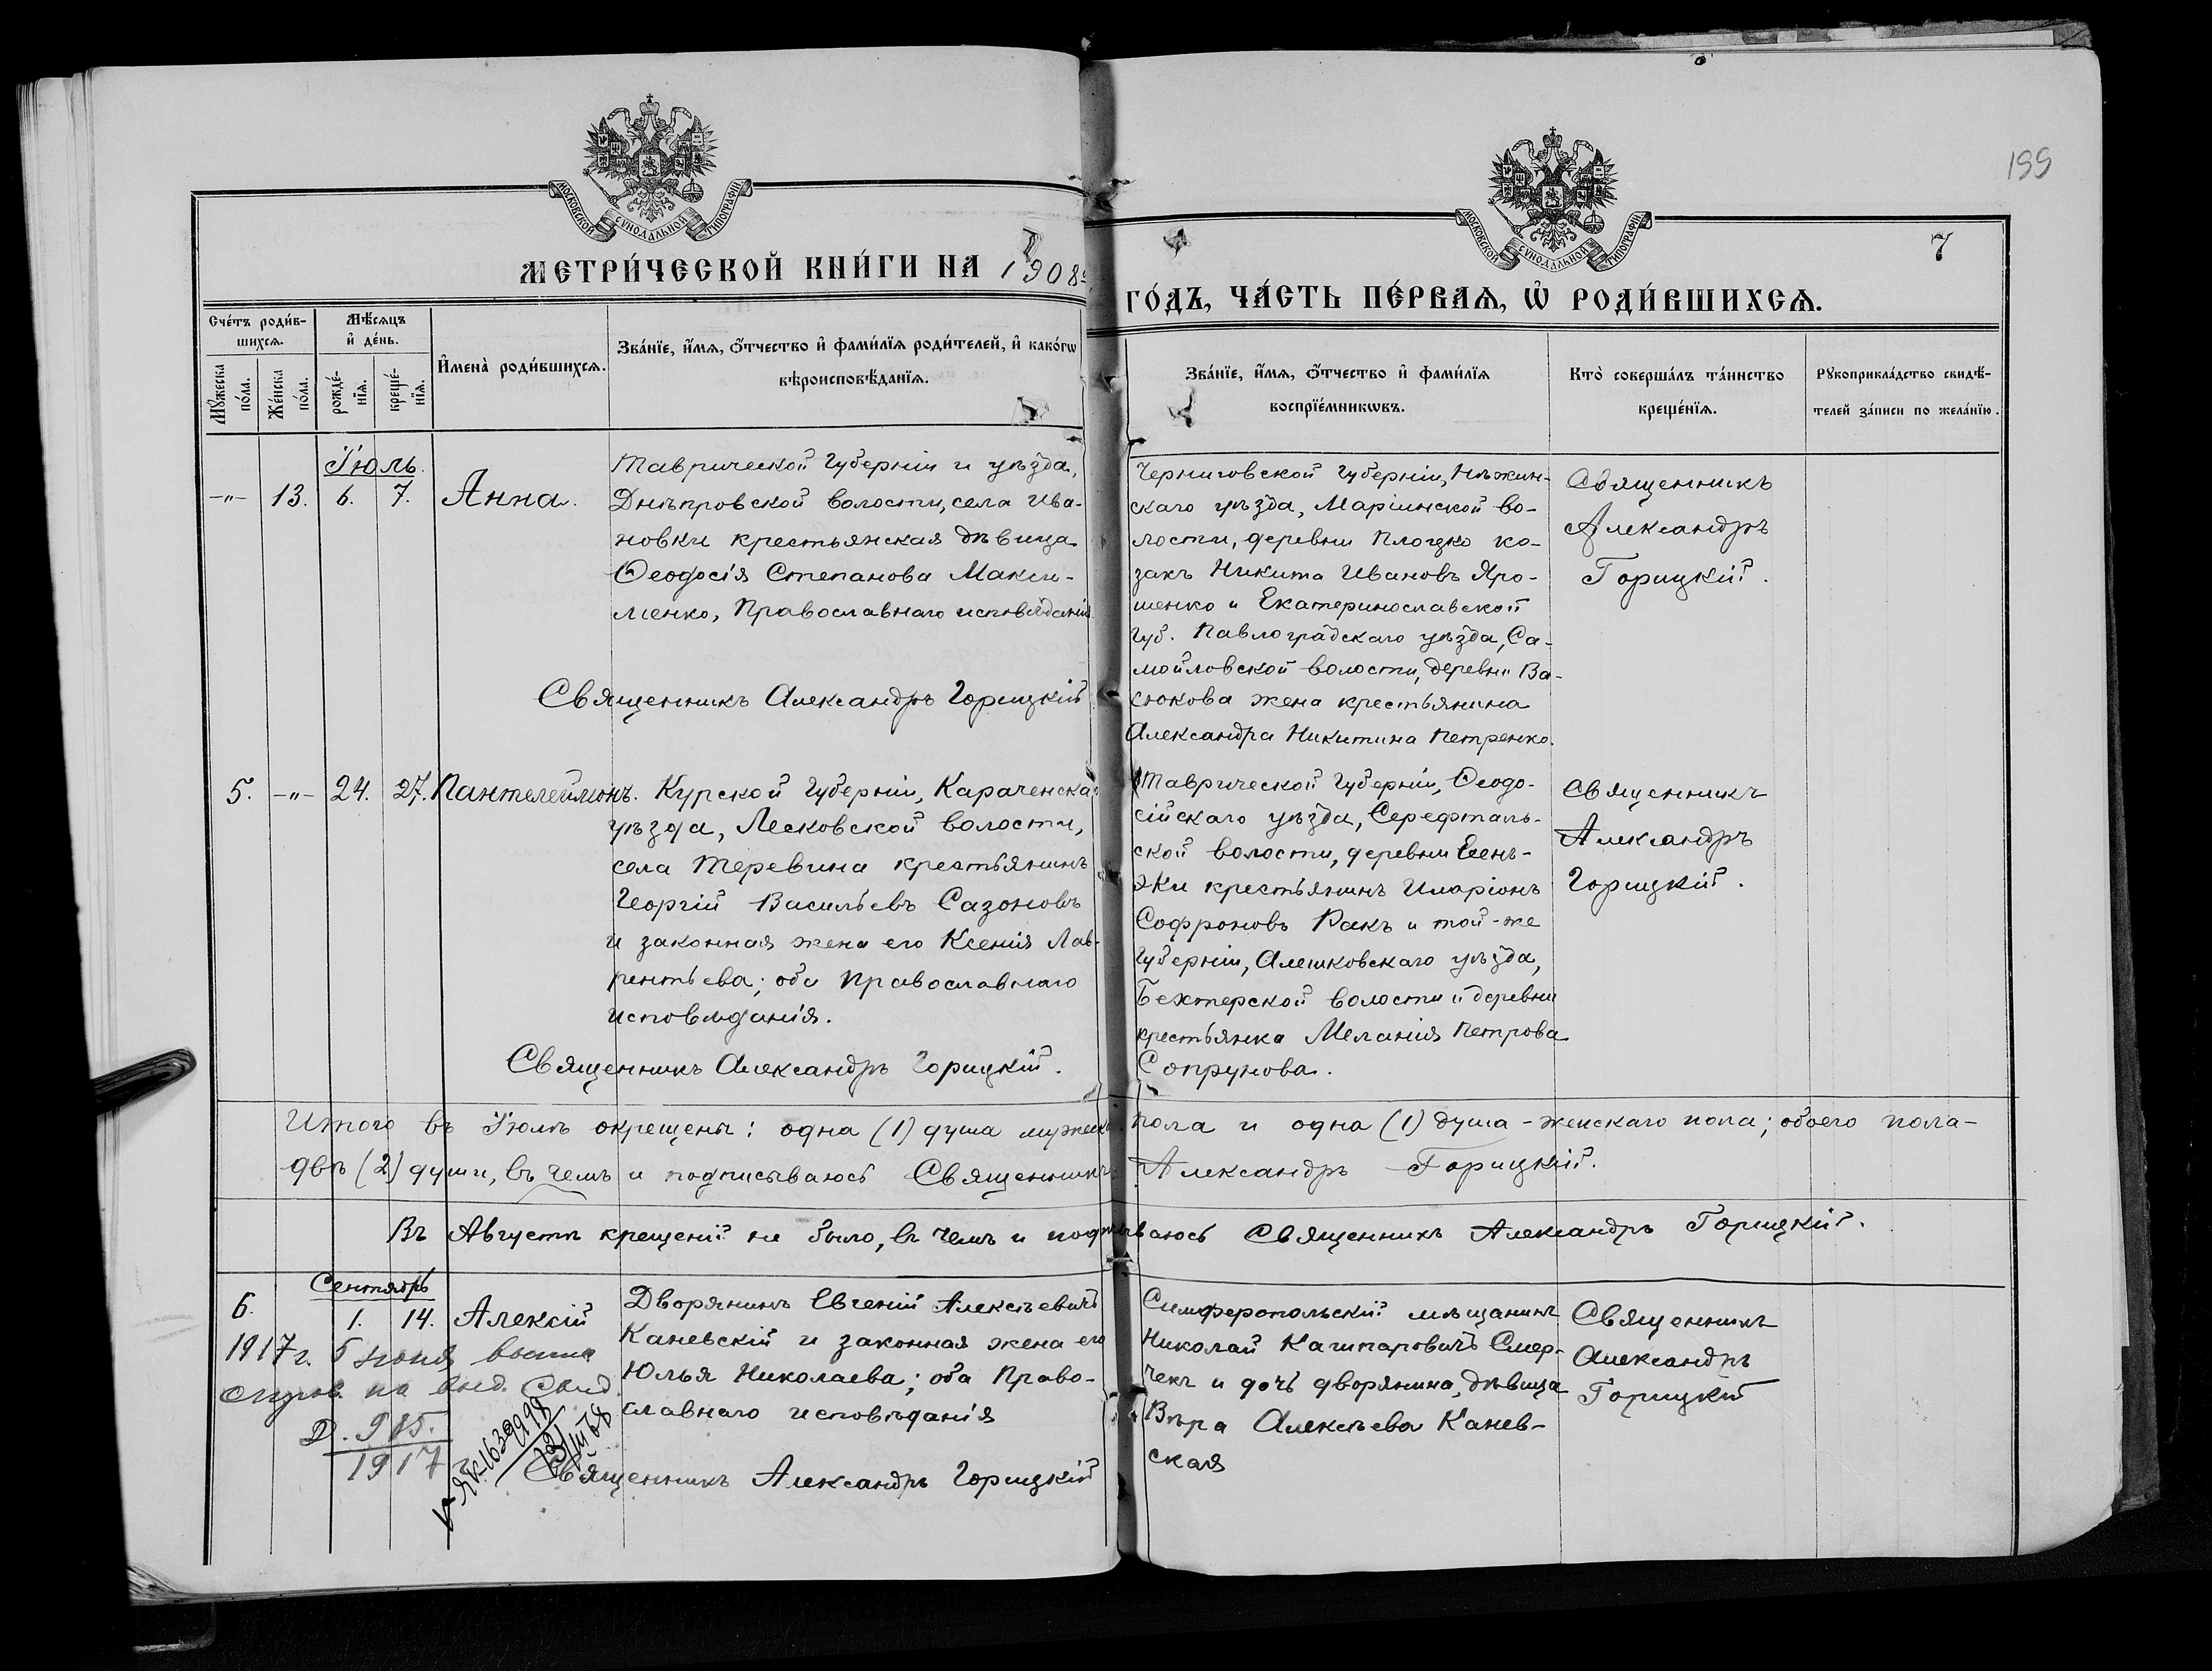 199
7
МОСКОВСКОЙ СѴНОДАЛЬНОЙ ТИПОГРАФІИ
МОСКОВСКОЙ СѴНОДАЛЬНОЙ ТИПОГРАФІИ
МЕТРИ́ЧЕСКОЙ КНИ́ГИ НА 1908й
ГО́ДЪ, ЧА́СТЬ ПЕ́РВАѦ, Ѡ҆ РОДИ́ВШИХСѦ.
Сче́тъ роди́в-
шихсѧ.
Мꙋ́жеска по́ла.
Же́нска по́ла.
Мѣ́сѧцъ
и҆ де́нь.
рожде́-
нїѧ.
креще́-
нїѧ.
И҆мена̀ роди́вшихсѧ.
Зва́нїе, и҆́мѧ, ѻ҆́тчество и҆ фами́лїѧ роди́телей, и҆ како́гѡ
вѣроисповѣ́данїѧ.
Зва́нїе, и҆́мѧ, ѻ҆́тчество и҆ фами́лїѧ
воспрїе́мникѡвъ.
Кто̀ соверша́лъ та́инство
креще́нїѧ.
Рꙋкоприкла́дство свидѣ́-
телей за́писи по жела́нїю.
Іюль.
-"- 13. 6. 7. Анна.
Таврической Губерніи и уѣзда,
Днѣпровской волости, села Ива-
новки крестьянская дѣвица
Ѳеодосія Степанова Макси-
менко, Православнаго исповѣданія.
Священникъ Александръ Горицкій
Черниговской губерніи, Нѣжин-
скаго уѣзда, Маріинской во-
лости, деревни Плоцко ка-
закъ Никита Ивановъ Яро-
шенко и Екатеринославской
губ. Павлоградскаго уѣзда, Са-
мойловской волости, деревни Ва-
сюкова жена крестьянина
Александра Никитина Петренко.
Священникъ
Александръ
Горицкій.
5. -"- 24. 27. Пантелеймонъ.
Курской Губерніи, Караченска
уѣзда, Лесковской волости,
села Теревина крестьянинъ
Георгій Васильевъ Сазоновъ
и законная жена его Ксенія Лав-
рентьева; оба Православнаго
исповѣданія.
Священникъ Александръ Горицкій.
Таврической Губерніи, Ѳеодо-
сійскаго уѣзда, Серефталь-
ской волости, деревни
крестьянинъ Иларіонъ
Софроновъ Ракъ и той-же
Губерніи, Алешковскаго уѣзда,
Бехтерской волости и деревни
крестьянка Меланія Петрова
Сопрунова.
Священникъ
Александръ
Горицкій.
Итого въ Іюлѣ окрещены: одна (1) душа мужеск. пола и одна (1) душа - женскаго пола; обоего пола -
двѣ (2) души, въ чемъ и подписываюсь Священникъ Александръ Горицкій.
Въ Августѣ крещеній не было, въ чемъ и подписываюсь Священникъ Александръ Горицкій.
Сентябрь
6. 1. 14. Алексій
Дворянинъ Евгеній Алексѣевичъ
Каневскій и законная жена его
Юлья Николаева; оба Право-
славнаго исповѣданія
Священникъ Александръ Горицкій
Симферопольскій мѣщанинъ
Николай Кашпаровичъ Смер-
чекъ и дочь дворянина, дѣвица
Вѣра Алексѣева Канев-
ская
Священникъ
Александръ
Горицкій
1917 г. 5 июня
на выд. Свид.
Д. 985.
1917
1639998